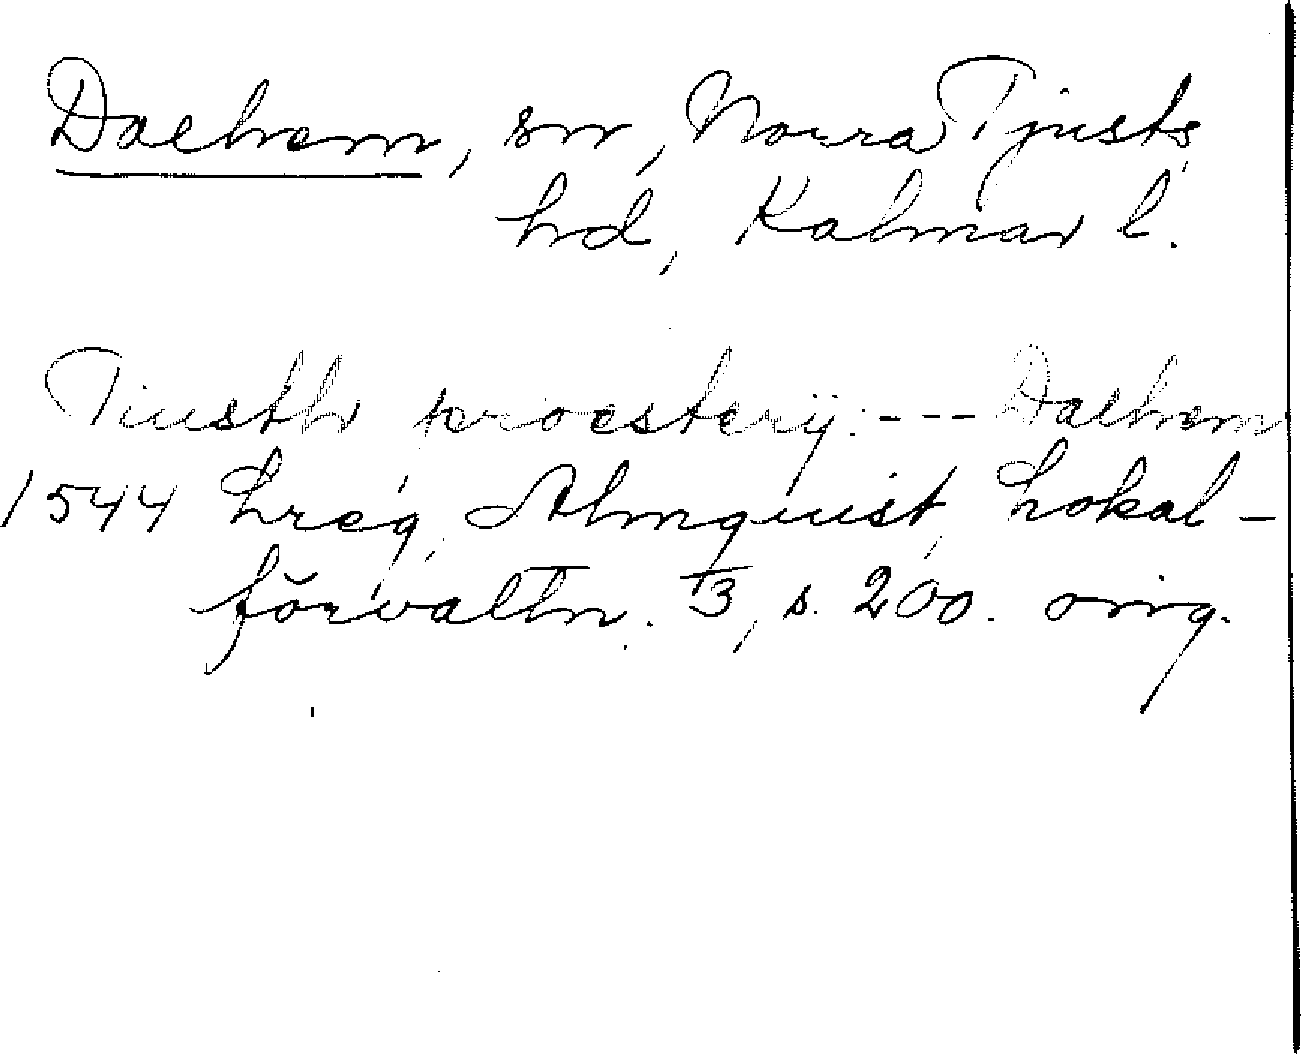 Dalhem, sn, Norra Tjusts
hd, Kalmar l.
Tiusth proesterij: --- Dalhem
1544 Lreg, Almquist, Lokal-
förvaltn. 3, s. 200. orig.